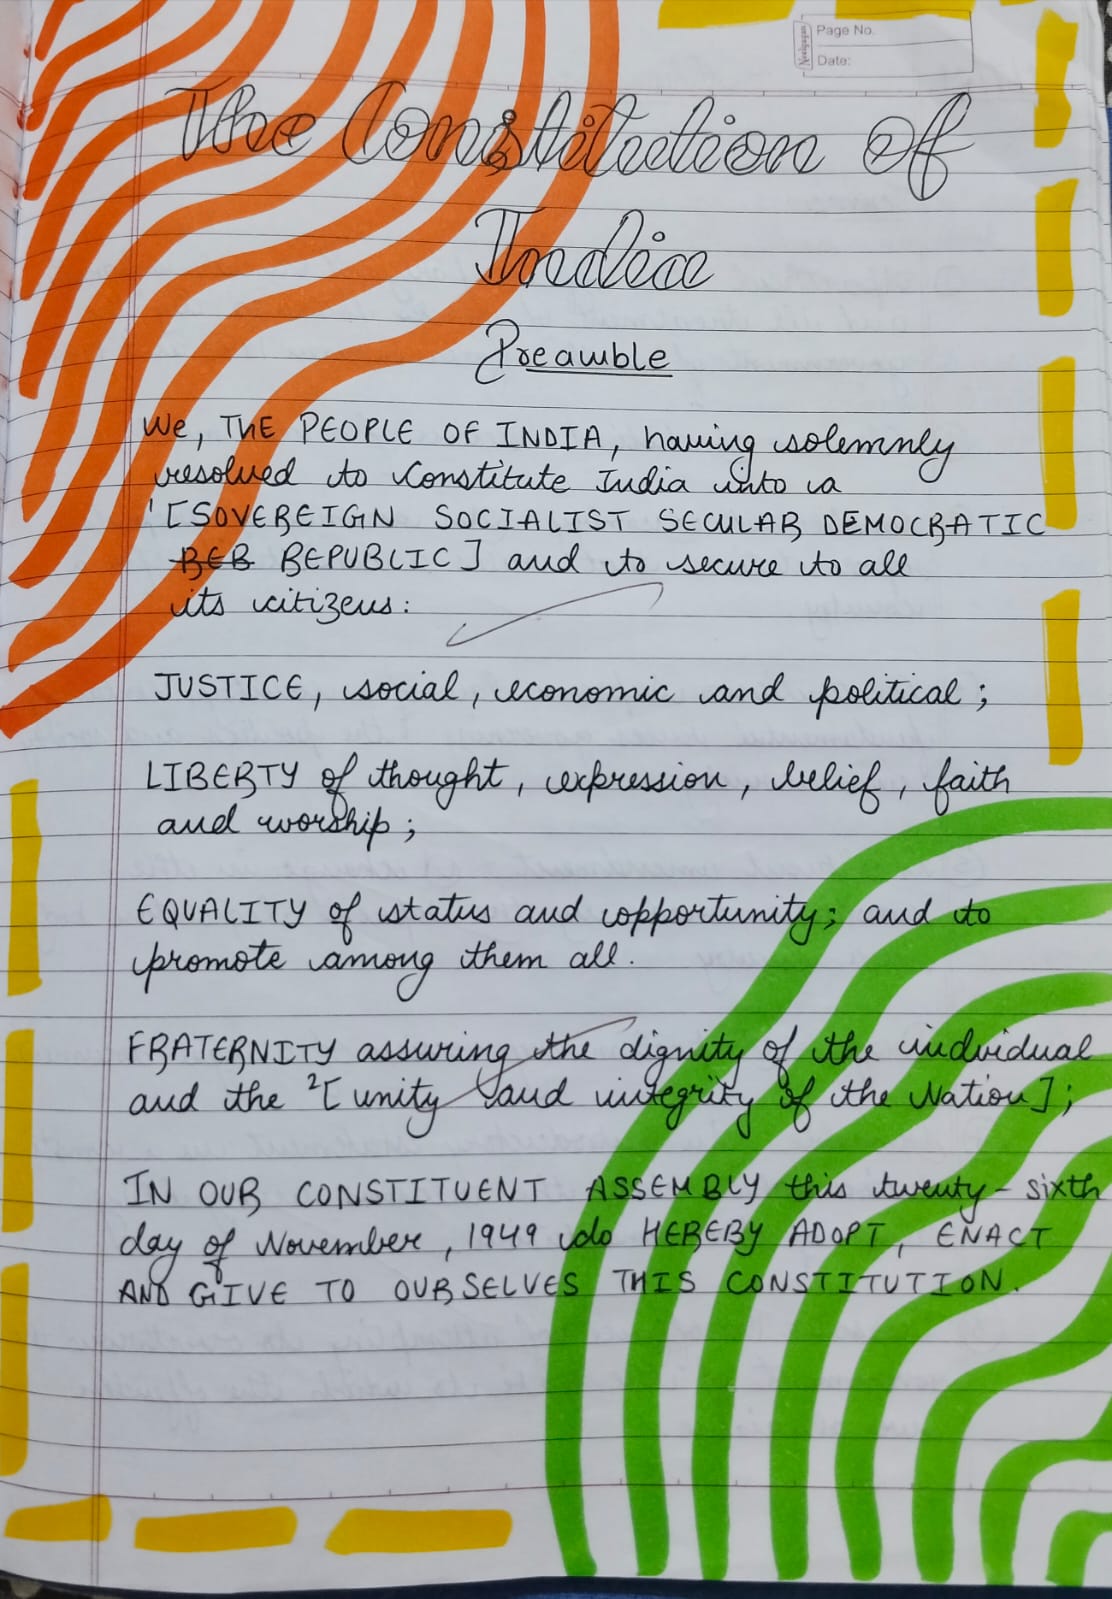 Neelgagan
Page No.
Date:
The Constitution Of
India
Preamble
We, THE PEOPLE OF INDIA, having solemnly
resolved to Constitute India into a
'[SOVEREIGN SOCIALIST SECULAR DEMOCRATIC
RER REPUBLIC] and to secure to all
its citizens:
JUSTICE, social, economic and political;
LIBERTY of thought, expression, belief, faith
and worship;
EQUALITY of status and opportunity; and to
promote among them all.
FRATERNITY assuring the dignity of the individual
and the ²[unity and integrity of the Nation];
IN OUR CONSTITUENT ASSEMBLY this twenty-sixth
day of November, 1949 do HEREBY ADOPT, ENACT
AND GIVE TO OURSELVES THIS CONSTITUTION.